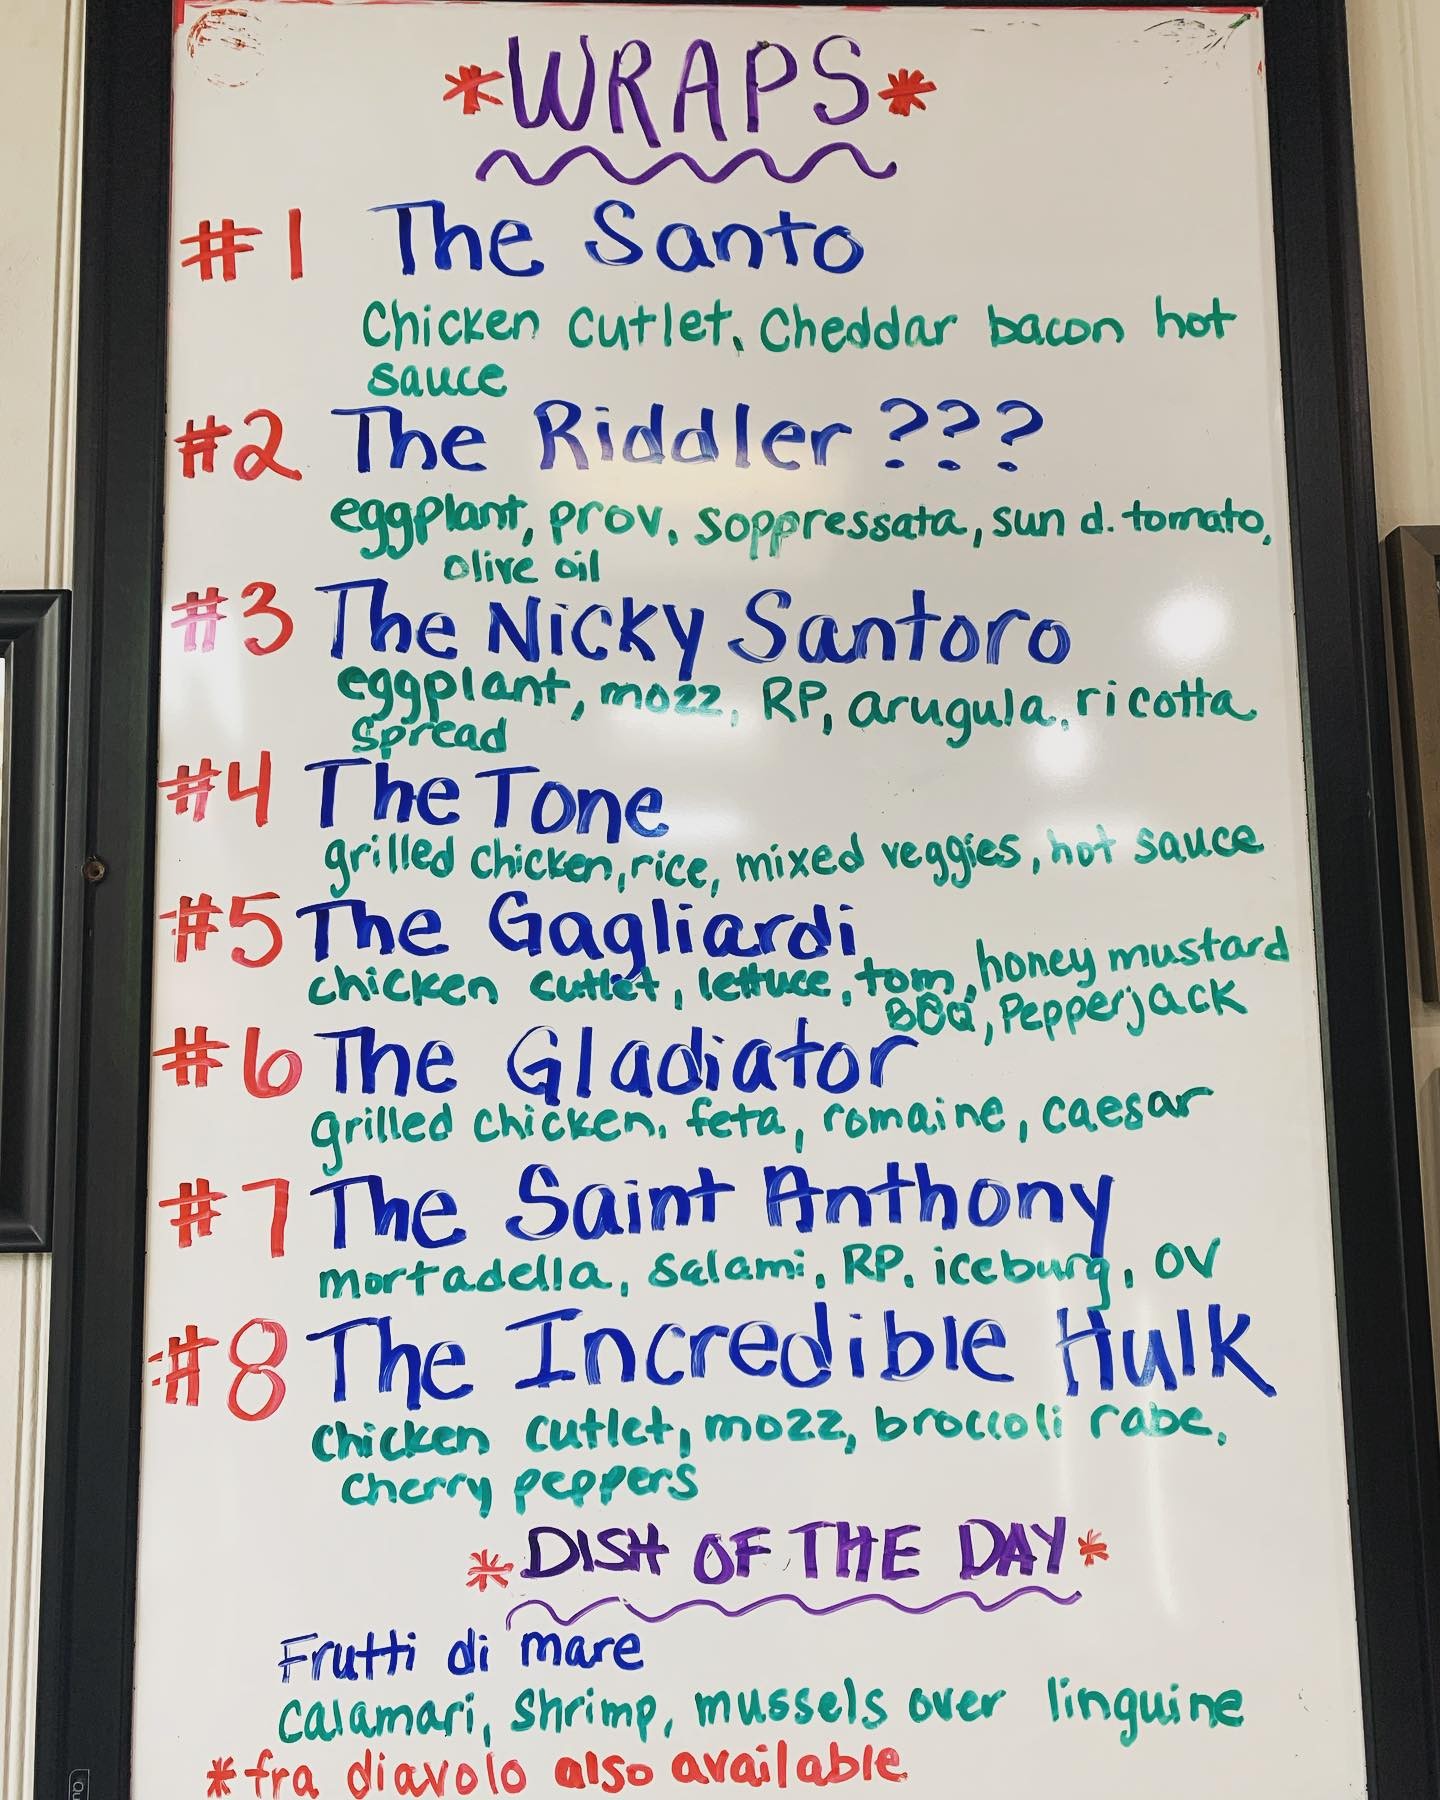 *WRAPS*
#1 The Santo
Chicken cutlet, Cheddar bacon hot
sauce
#2 The Riddler ???
eggplant, prov, soppressata, sun d. tomato,
olive oil
#3 The Nicky Santoro
eggplant, mozz, RP, arugula, ricotta
spread
#4 The Tone
grilled chicken, rice, mixed veggies, hot sauce
#5 The Gagliardi
chicken cutlet, lettuce, tom, honey mustard
BBQ, Pepperjack
#6 The Gladiator
grilled chicken, feta, romaine, caesar
#7 The Saint Anthony
mortadella, salami, RP, iceburg, OV
#8 The Incredible Hulk
chicken cutlet, mozz, broccoli rabe,
cherry peppers
*DISH OF THE DAY*
Frutti di mare
calamari, shrimp, mussels over linguine
*fra diavolo also available